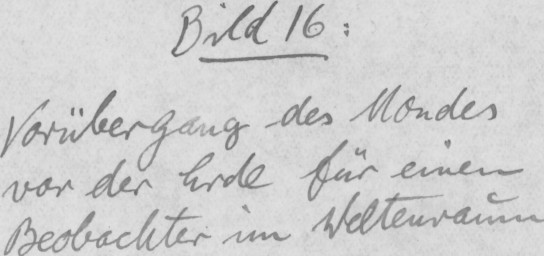 Bild 16:
Vorübergang des Mondes
vor der Erde für einen
Beobachter im Weltenraum